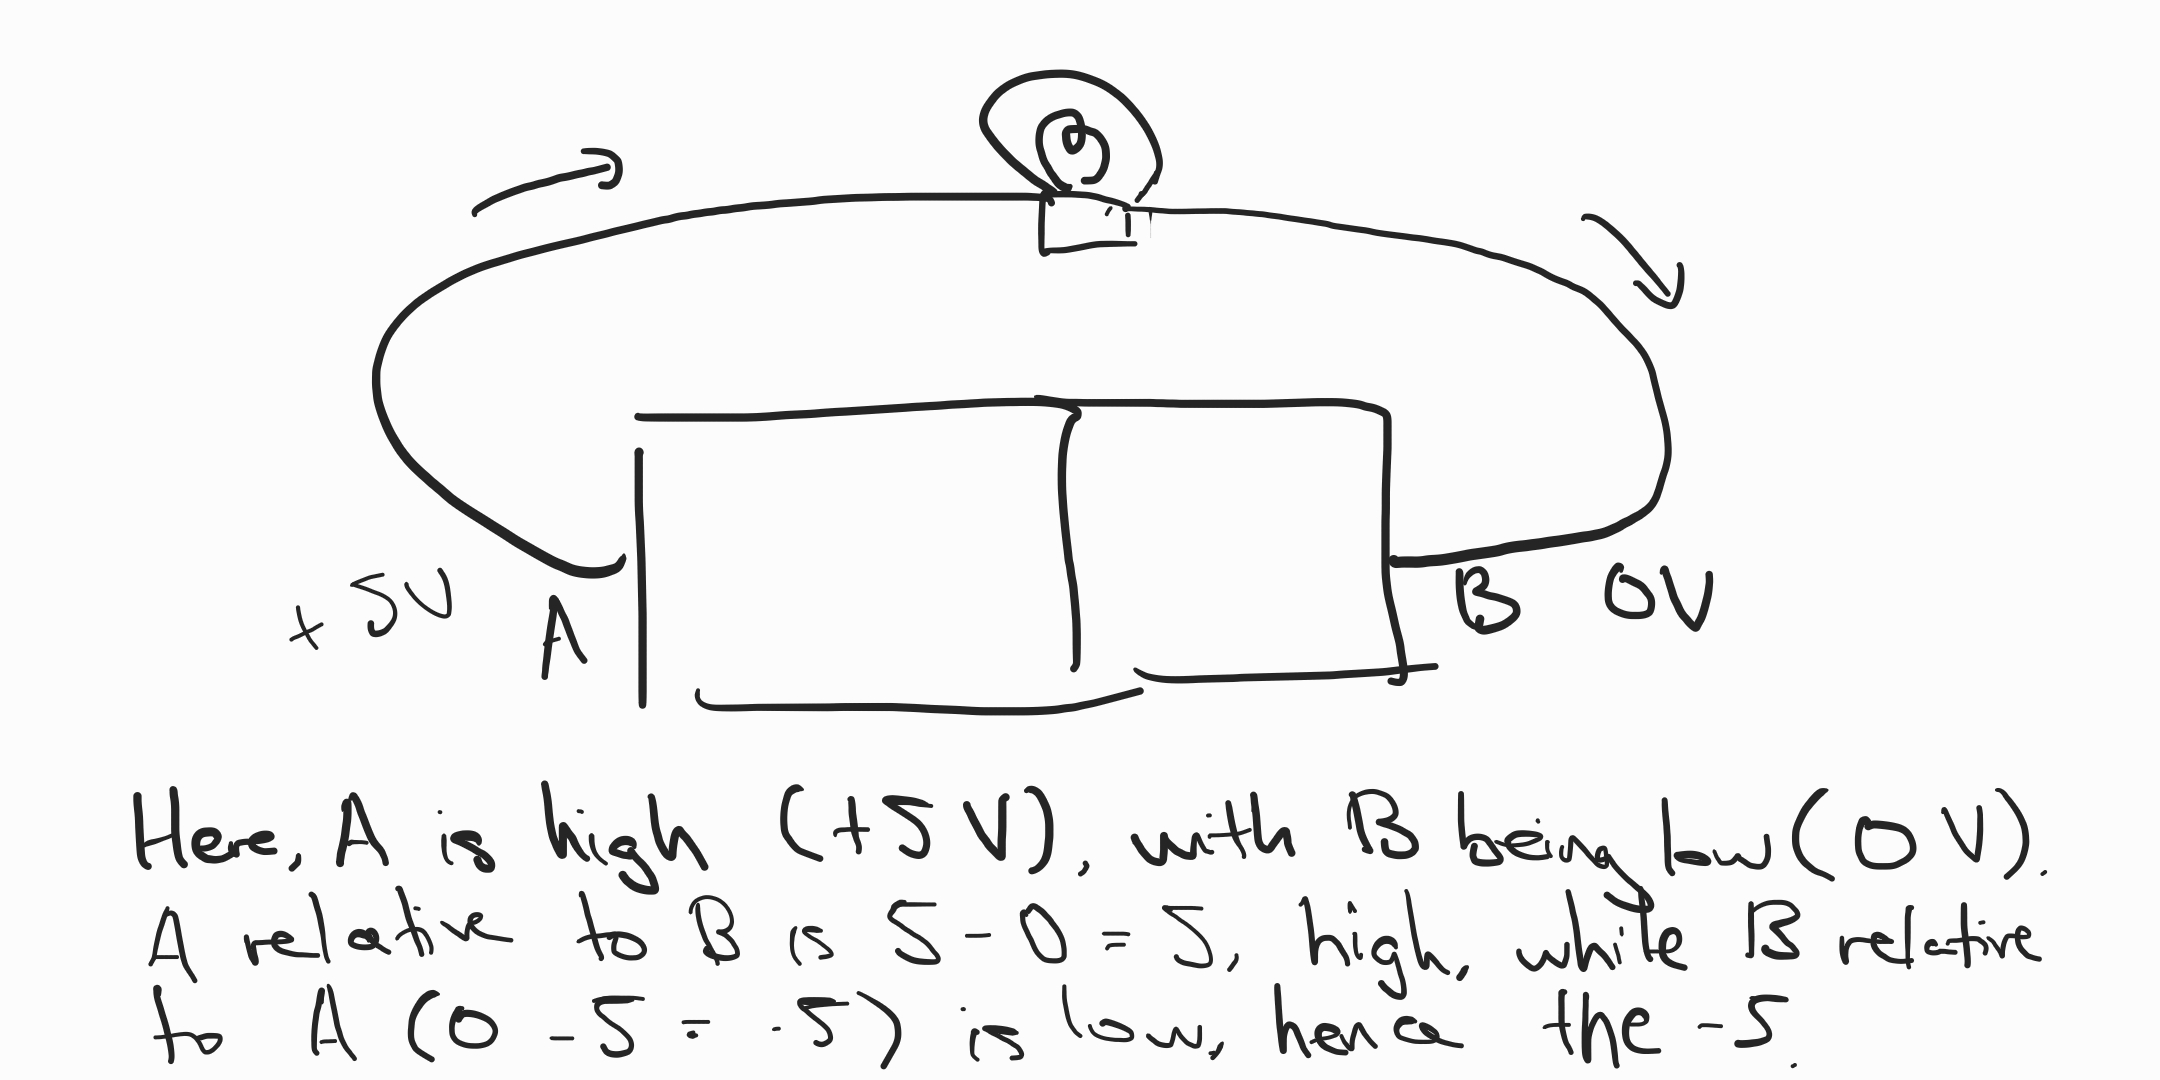 + 5V
A
B 0V
Here, A is high (+5V), with B being low (0V).
A relative to B is 5-0=5, high, while B relative
to A (0-5=-5) is low, hence the -5.